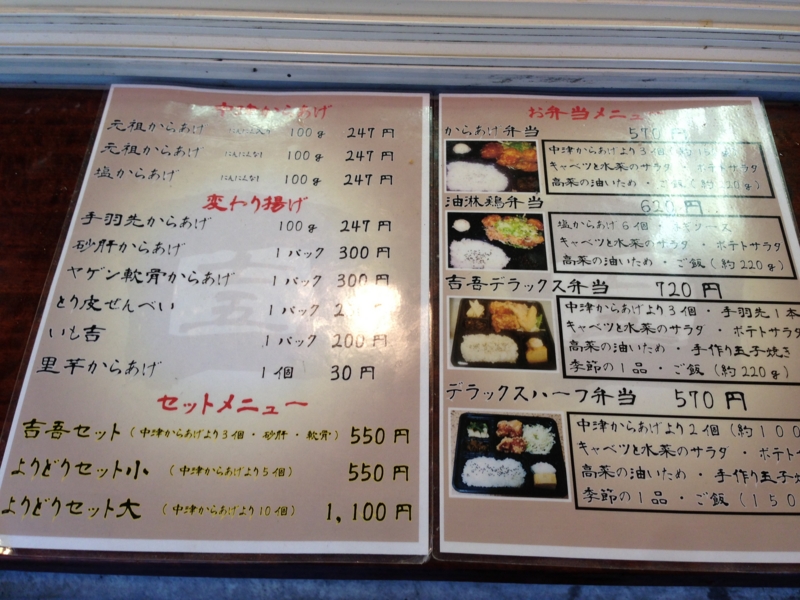 中津からあげ
元祖からあげ にんにん入り 100g 247円
元祖からあげ にんにんなし 100g 247円
塩からあげ にんにんなし 100g 247円
変わり揚げ
手羽先からあげ 100g 247円
砂肝からあげ 1パック 300円
ヤゲン軟骨からあげ 1パック 300円
とり皮せんべい 1パック 円
いも吉 1パック 200円
里芋からあげ 1個 30円
セットメニュー
吉吾セット (中津からあげより3個・砂肝・軟骨) 550円
よりどりセット小 (中津からあげより5個) 550円
よりどりセット大 (中津からあげより10個) 1,100円
お弁当メニュー
からあげ弁当 570円
中津からあげより3個
キャベツと水菜のサラダ・ポテトサラダ
高菜の油いため・ご飯(約220g)
油淋鶏弁当 620円
塩からあげ6個・ソース
キャベツと水菜のサラダ・ポテトサラダ
高菜の油いため・ご飯(約220g)
吉吾デラックス弁当 720円
中津からあげより3個・手羽先1本
キャベツと水菜のサラダ・ポテトサラダ
高菜の油いため・手作り玉子焼き
季節の1品・ご飯(約220g)
デラックスハーフ弁当 570円
中津からあげより2個(約100
キャベツと水菜のサラダ・ポテト
高菜の油いため・手作り玉子焼
季節の1品・ご飯(150